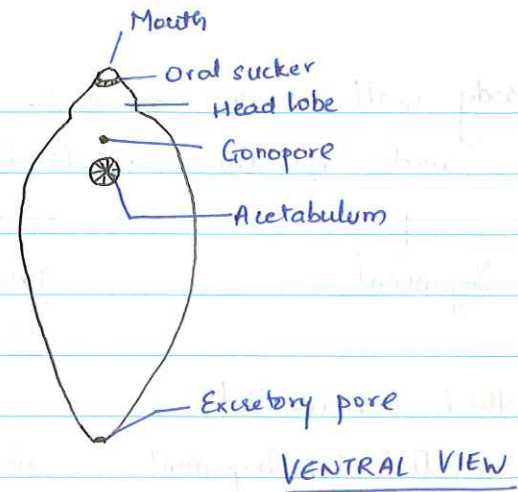 Mouth
Oral sucker
Head lobe
Gonopore
Acetabulum
Excretory pore
VENTRAL VIEW